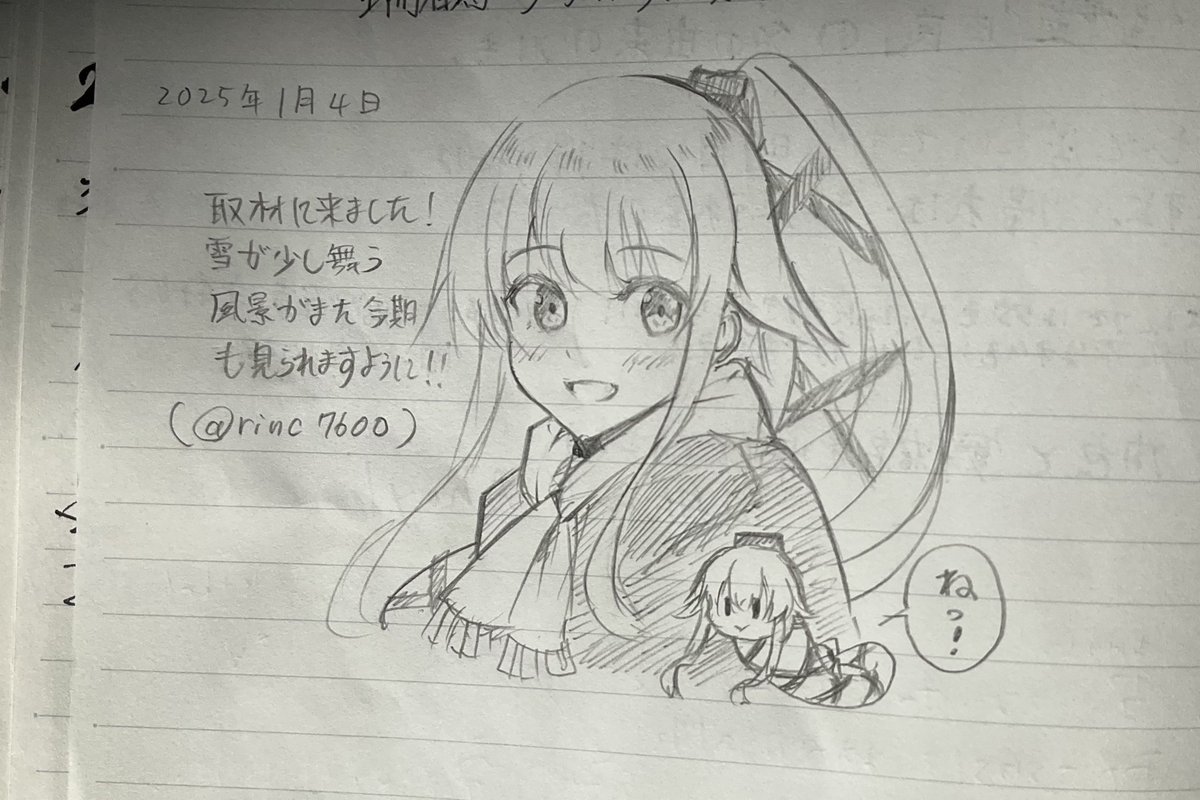 2025年1月4日
取材に来ました!
雪が少し舞う
風景がまた今期
も見られますように!!
(@rinc7600)
ねっ!